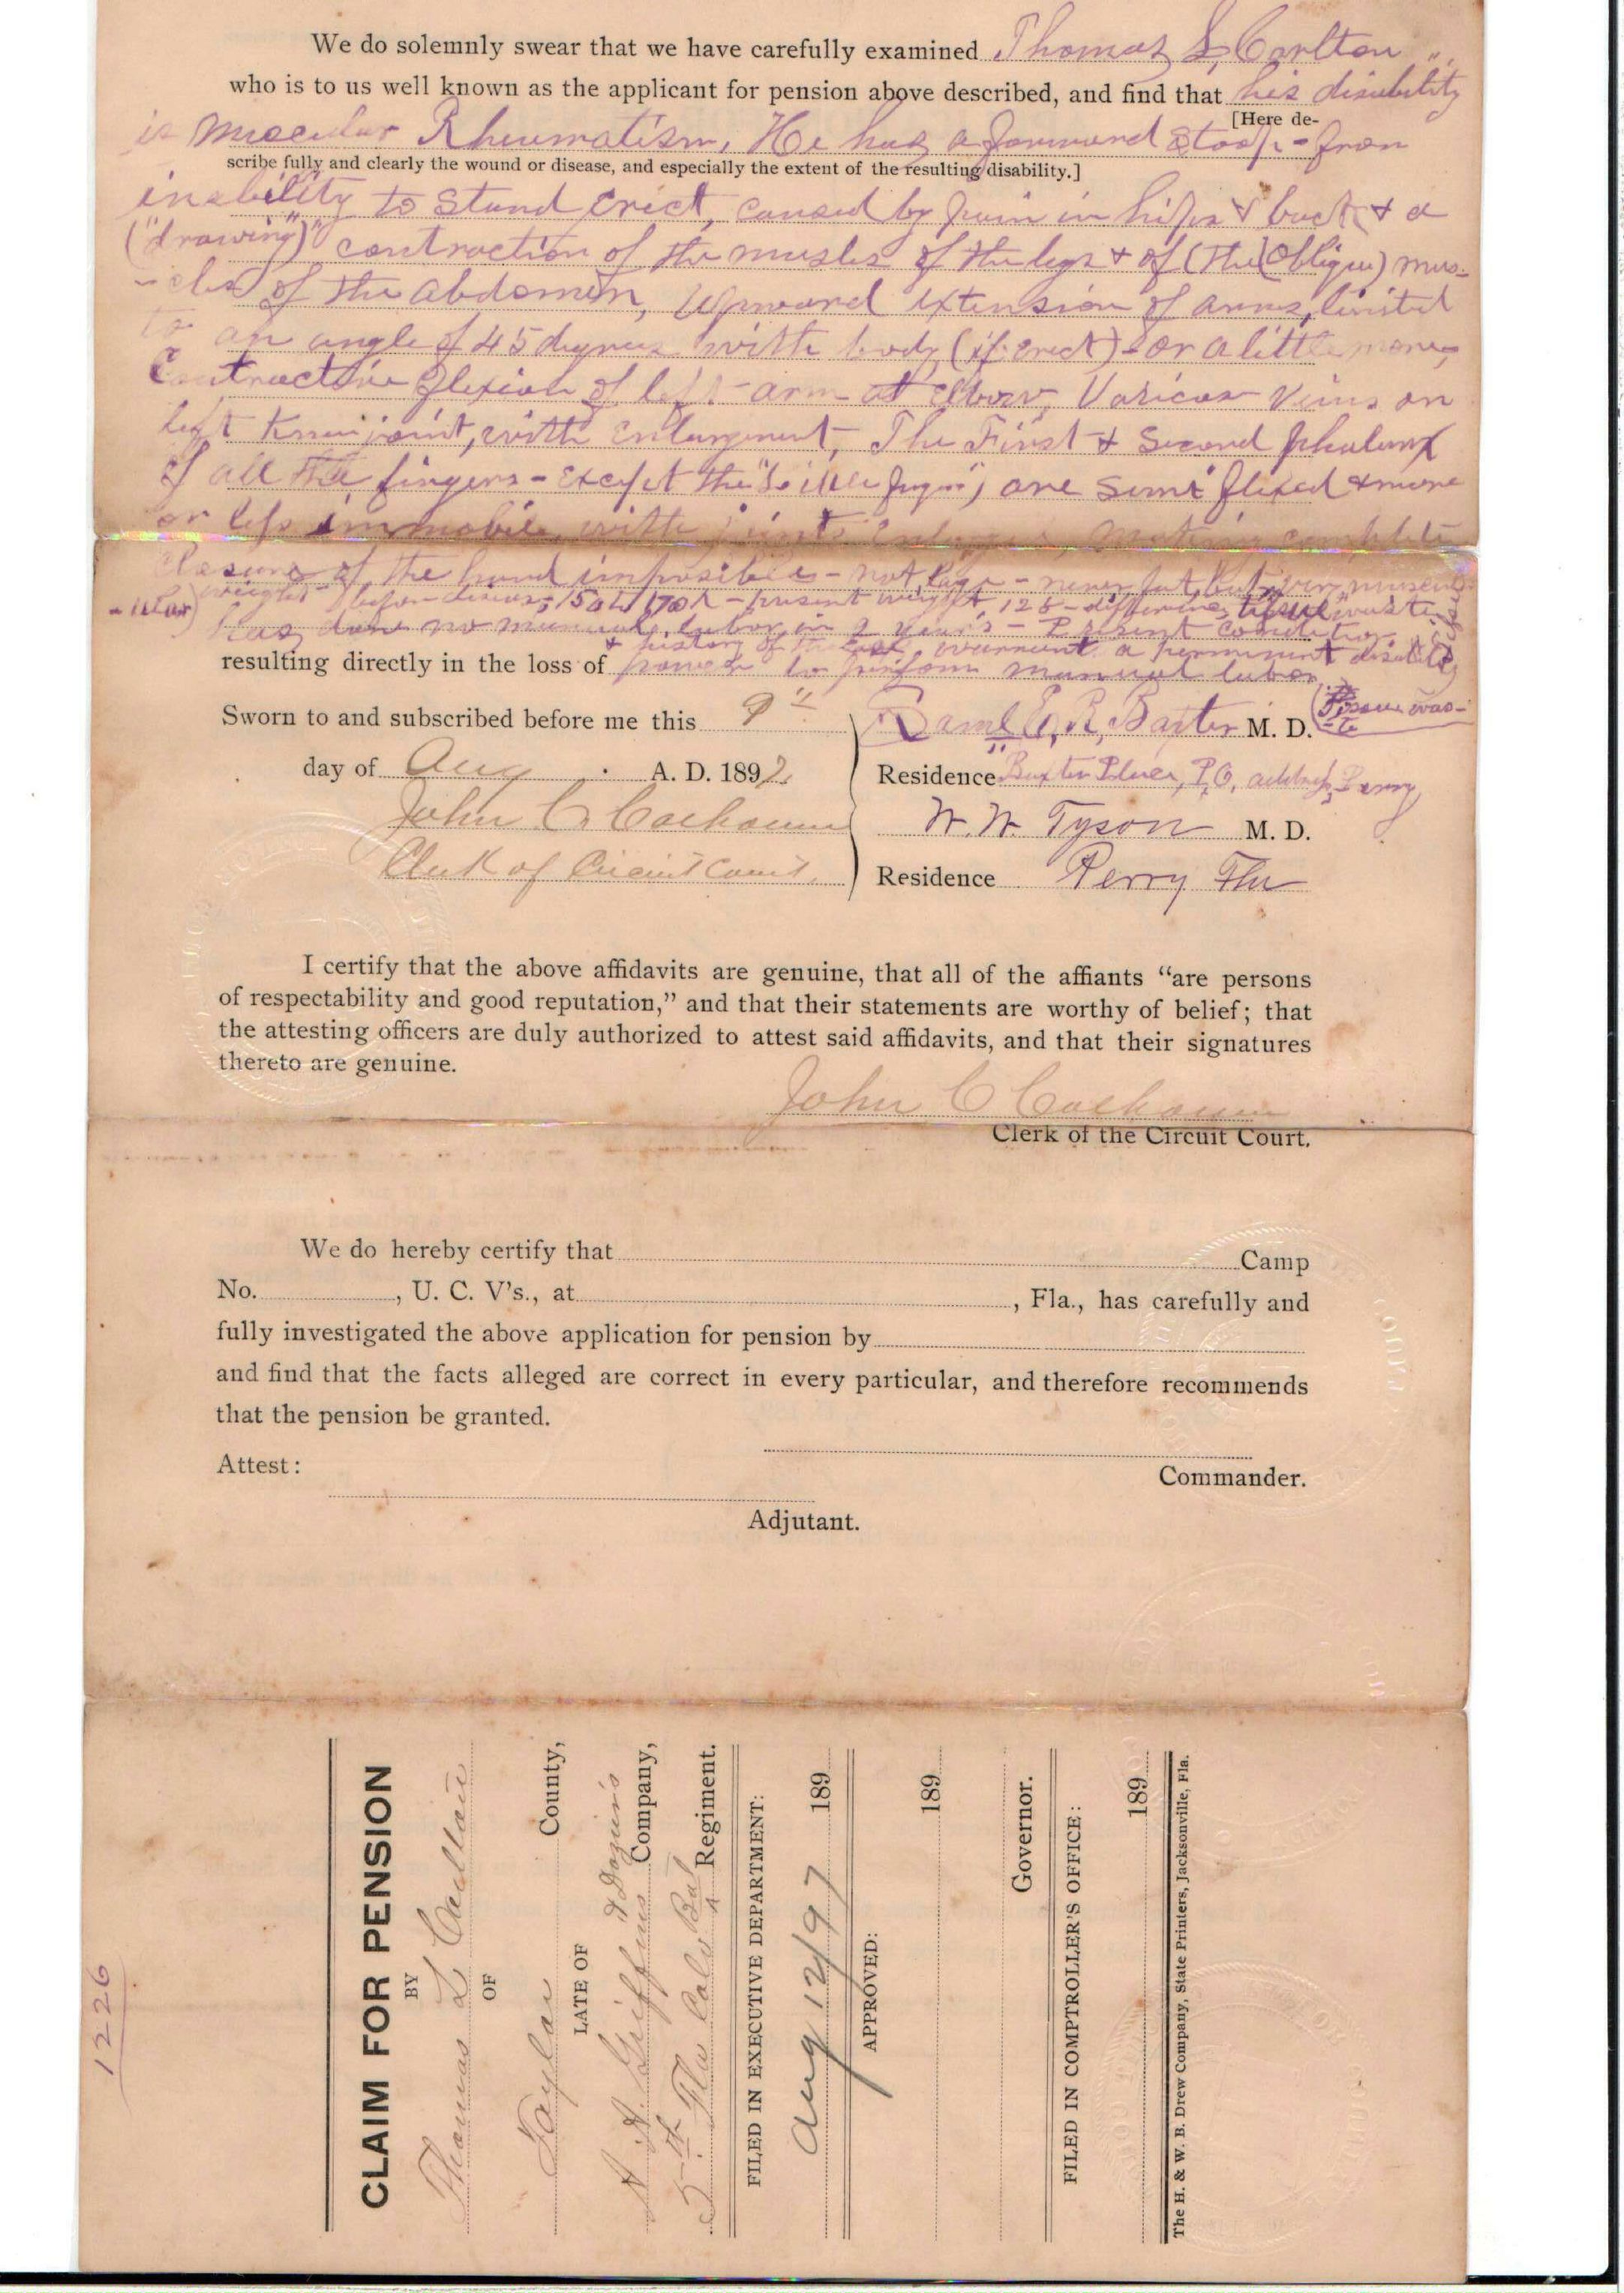 We do solemnly swear that we have carefully examined Thomas L, Carlton
who is to us well known as the applicant for pension above described, and find that his disability
[Here de-
is Muscular Rheumatism, He has a forward stoop - from
scribe fully and clearly the wound or disease, and especially the extent of the resulting disability.]
inability to stand Erect, caused by pain in hips & back & a
("drawing") contraction of the muscles of the legs & of (the (oblique) mus-
-cles of the abdomen, upward extension of arms, limited
to an angle of 45 degrees with body (if erect) - or a little more,
Contractive flexion of left arm at elbow, Varicose Veins on
left Knee joint, with enlargement, The First & Second phalanx
of all the fingers - Except the "Little finger") are semi flexed & more
or less immobile, with joints Enlarged, Making complete
closure of the hand impossible - not large - never fat but very muscu-
-lar) weight before disease, 150 to 170 - present weight, 128 - difference, tissue waste
Has done no manual labor in 2 years - Present condition
& history of the case, warrant a permanent disability
resulting directly in the loss of power to perform manual labor.
Sworn to and subscribed before me this 9"
Saml E, R, Baxter M. D.
(Tissue was-
-te
day of Aug A. D. 1897
Residence Baxter Place, P,O, address, Perry
John C Calhoun
W. W. Tyson M. D.
Clerk of Circuit Court.
Residence Perry Fla
I certify that the above affidavits are genuine, that all of the affiants “are persons
of respectability and good reputation,” and that their statements are worthy of belief; that
the attesting officers are duly authorized to attest said affidavits, and that their signatures
thereto are genuine.
John C Calhoun
Clerk of the Circuit Court.
We do hereby certify that Camp
No. , U. C. V's., at , Fla., has carefully and
fully investigated the above application for pension by
and find that the facts alleged are correct in every particular, and therefore recommends
that the pension be granted.
Attest:
Commander.
Adjutant.
1226
CLAIM FOR PENSION
BY
Thomas L Carlton
OF
Taylor County,
LATE OF
& Dozier's
Griffins Company,
5th Fla Calv Bat Regiment.
FILED IN EXECUTIVE DEPARTMENT:
Aug 12/97 189
APPROVED:
189
Governor.
FILED IN COMPTROLLER'S OFFICE:
189
The H. & W. B. Drew Company, State Printers, Jacksonville, Fla.